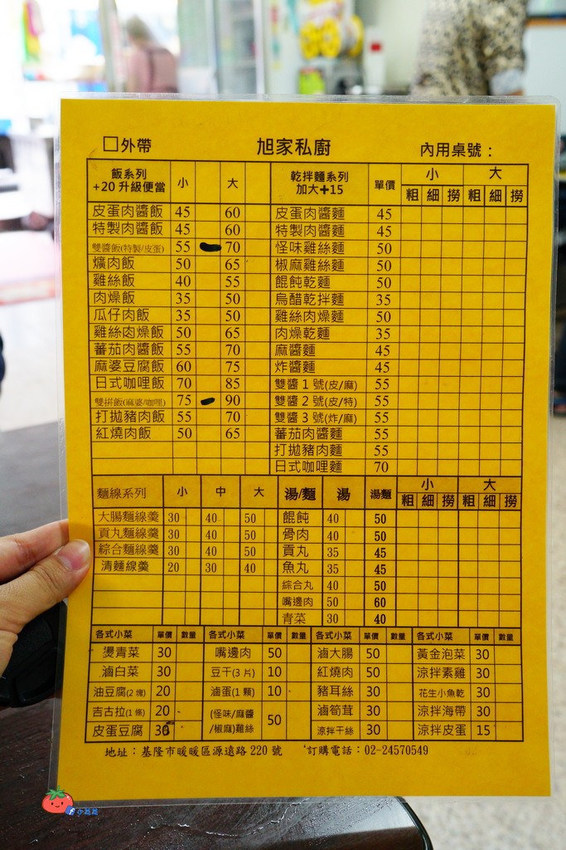 □外帶 旭家私廚 內用桌號：
飯系列 +20 升級便當 小 大 乾拌麵系列 加大+15 單價 小 大
粗 細 撈 粗 細 撈
皮蛋肉醬飯 45 60 皮蛋肉醬麵 45
特製肉醬飯 45 60 特製肉醬麵 45
雙醬飯(特製/皮蛋) 55 70 怪味雞絲麵 50
爌肉飯 50 65 椒麻雞絲麵 50
雞絲飯 40 55 餛飩乾麵 50
肉燥飯 35 50 烏醋乾拌麵 35
瓜仔肉飯 35 50 雞絲肉燥麵 50
雞絲肉燥飯 50 65 肉燥乾麵 35
蕃茄肉醬飯 55 70 麻醬麵 45
麻婆豆腐飯 60 75 炸醬麵 45
日式咖哩飯 70 85 雙醬 1 號(皮/麻) 55
雙拼飯(麻婆/咖哩) 75 90 雙醬 2 號(皮/特) 55
打拋豬肉飯 55 70 雙醬 3 號(炸/麻) 55
紅燒肉飯 50 65 蕃茄肉醬麵 55
打拋豬肉麵 55
日式咖哩麵 70
麵線系列 小 中 大 湯/麵 湯 湯麵 小 大
粗 細 撈 粗 細 撈
大腸麵線羹 30 40 50 餛飩 40 50
貢丸麵線羹 30 40 50 骨肉 40 50
綜合麵線羹 30 40 50 貢丸 35 45
清麵線羹 20 30 40 魚丸 35 45
綜合丸 40 50
嘴邊肉 50 60
青菜 30 40
各式小菜 單價 數量 各式小菜 單價 數量 各式小菜 單價 數量 各式小菜 單價 數量
燙青菜 30 嘴邊肉 50 滷大腸 50 黃金泡菜 30
滷白菜 30 豆干(3 片) 10 紅燒肉 50 涼拌素雞 30
油豆腐(2 塊) 20 滷蛋(1 顆) 10 豬耳絲 30 花生小魚乾 30
吉古拉(1 條) 20 (怪味/麻醬/椒麻)雞絲 50 滷筍茸 30 涼拌海帶 30
皮蛋豆腐 30 涼拌干絲 30 涼拌皮蛋 15
地址：基隆市暖暖區源遠路 220 號 訂購電話：02-24570549